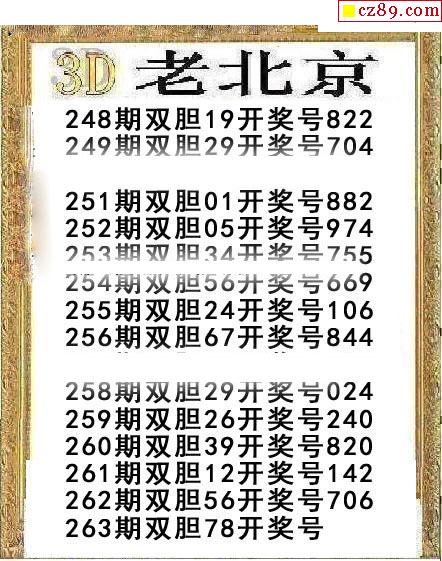 cz89.com
3D 老北京
248期双胆19开奖号822
249期双胆29开奖号704
251期双胆01开奖号882
252期双胆05开奖号974
253期双胆34开奖号755
254期双胆56开奖号669
255期双胆24开奖号106
256期双胆67开奖号844
258期双胆29开奖号024
259期双胆26开奖号240
260期双胆39开奖号820
261期双胆12开奖号142
262期双胆56开奖号706
263期双胆78开奖号